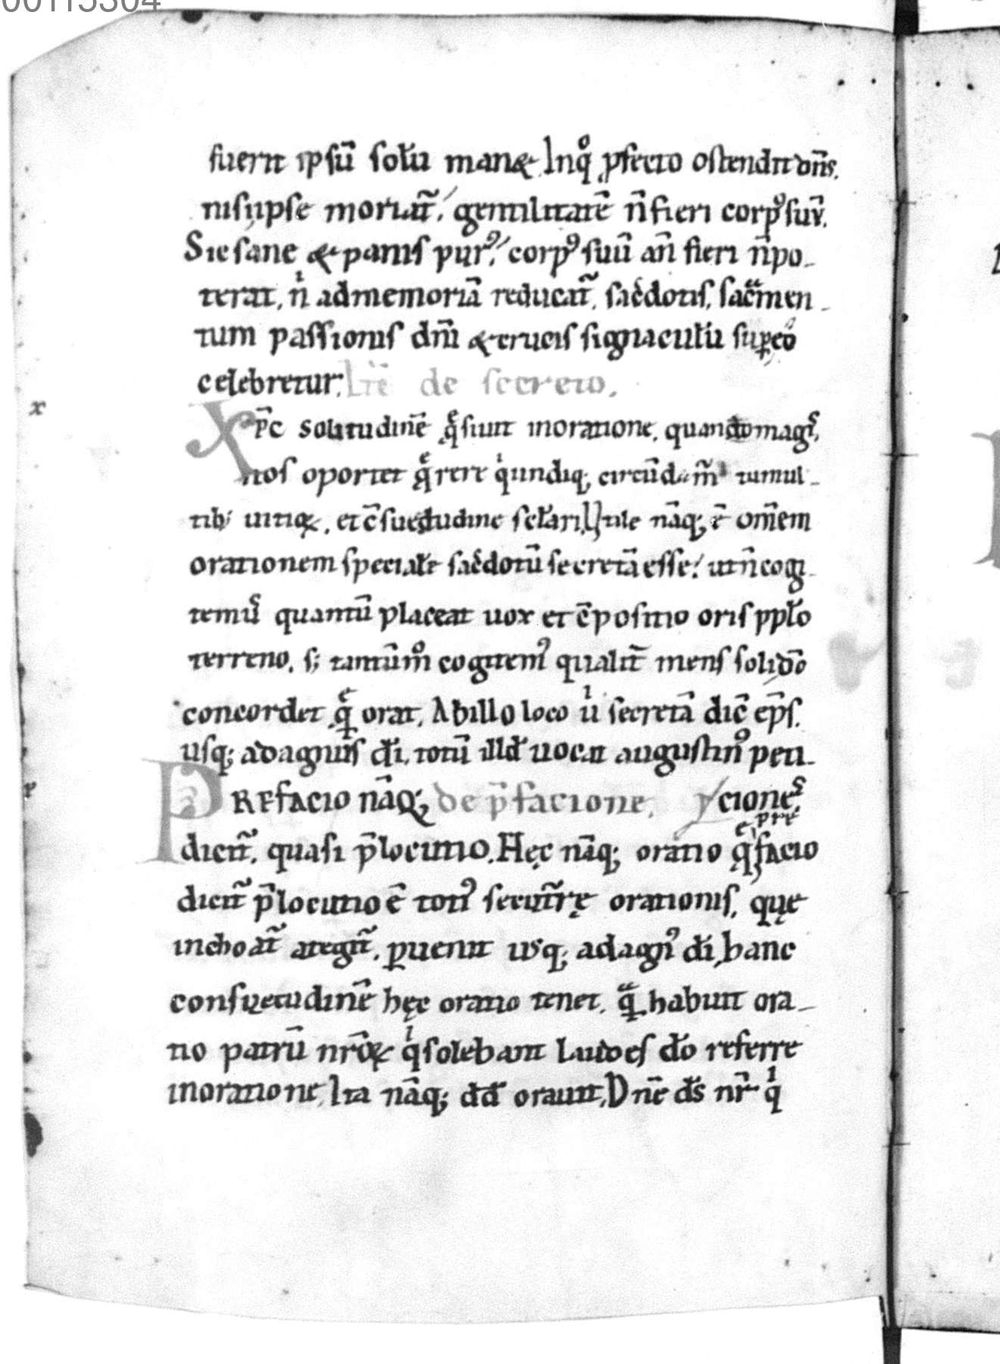 00115304
fuerit ipsū solū manet. Inq̊ ꝓfecto ostendit dn̄s.
nisi ipse moriat᷑, gentilitatē n̄ fieri corpꝰ suū.
Sic sane & panis purꝰ, corpꝰ suū an̄ fieri n̄ po-
terat, nͥ ad memoriā reducat᷑, sac̄dotis, sac̄men-
tum passionis dn̄i & crucis signaculū suꝑ eo
celebretur. de secreto.
x
Xp̄c solitudinē q̄siuit in oratione, quando magͥs
nos oportet q̄rere qͥ undiq; circūdam̄
tib; uitioꝝ, et c̄suetudine sc̄lari. Utile nāq; ē om̄em
orationem speciale sac̄dotū secretā esse, ut n̄ cogi-
temꝰ quantū placeat uox et c̄positio oris pp̄lo
terreno, s; tantūm̊ cogitemꝰ qualit᷑ mens solido
concordet q̄ orat. Ab illo loco uͥ secretā dic̄ ep̄s.
usq; ad agnus di, totū illd uocat augustinꝰ peti-
p
PREfacio nāq; de p̄facione. ciones.
p̄re
dicit᷑, quasi p̄locutio. Hęc nāq; oratio quͥ facio
dicit᷑ p̄locutio ē totiꝰ secut᷑rę orationis, quę
inchoat᷑ a te igit᷑, ꝑuenit usq; ad agnꝰ di, hanc
consuetudinē hęc oratio tenet, quͣ habuit ora-
tio patrū nr̄oꝝ qͥ solebant laudes do referre
in oratione. Ita nāq; dd orauit, Dn̄e ds nr̄ qͥ